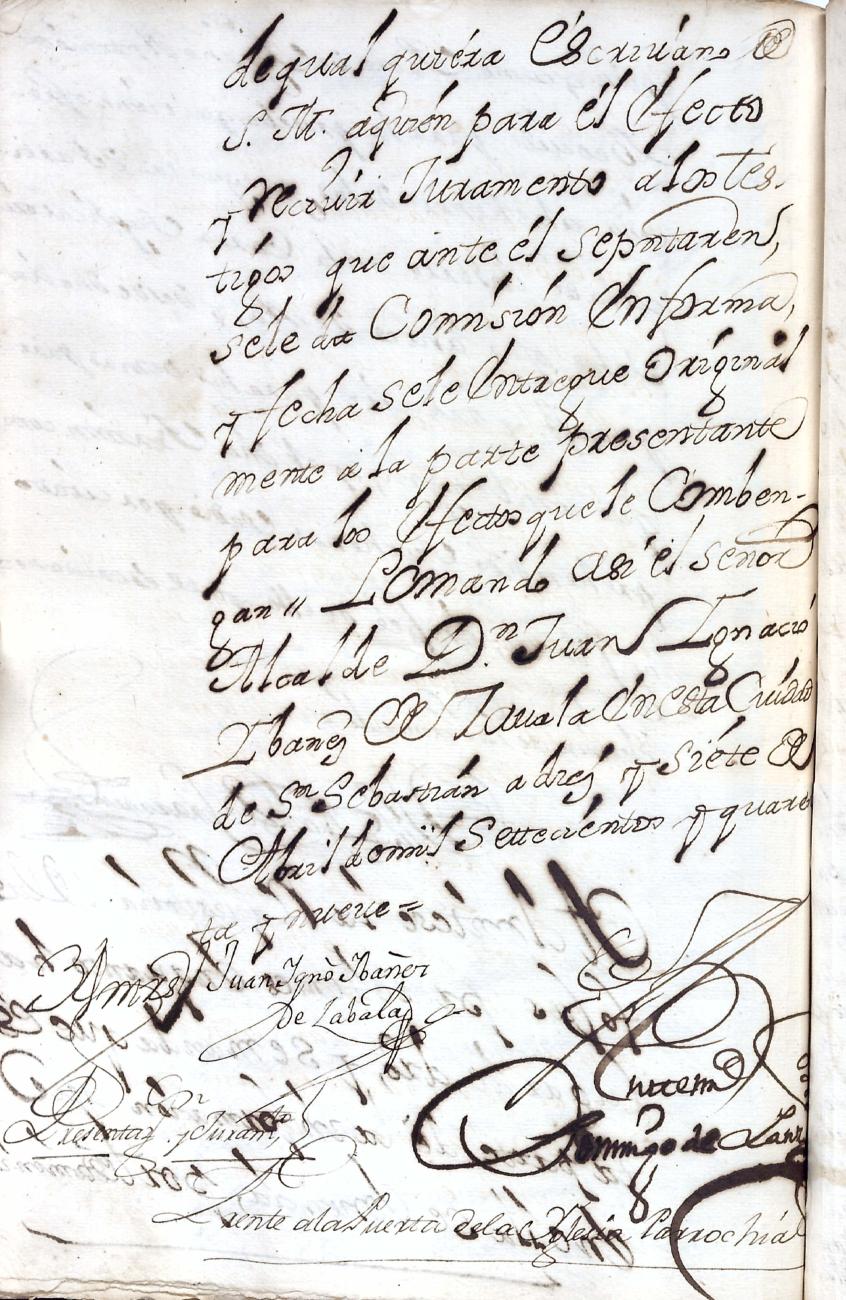 de qual quiera Escrivano de
S. M. aquien para el Efecto
y recivir Juramento alos tes-
tigos que ante el sepntaren,
sele da Comision En forma,
y fecha sele Entregue Original
mente a la parte presentante
para los Efectos que le Comben-
gan " Lo mando asi el señor
Alcalde Dn. Juan Ignacio
Ybanez de Zavala En esta Ciudad
de Sn Sebastian a diez y siete de
Abril de mil Settecientos y quaren
ta y nueve =
Juan Ygnº Ybañez
de Zabala
Antemi
Domingo de
Presentazn. y Juramto
Frente ala Puerta de la Yglesia Parrochial